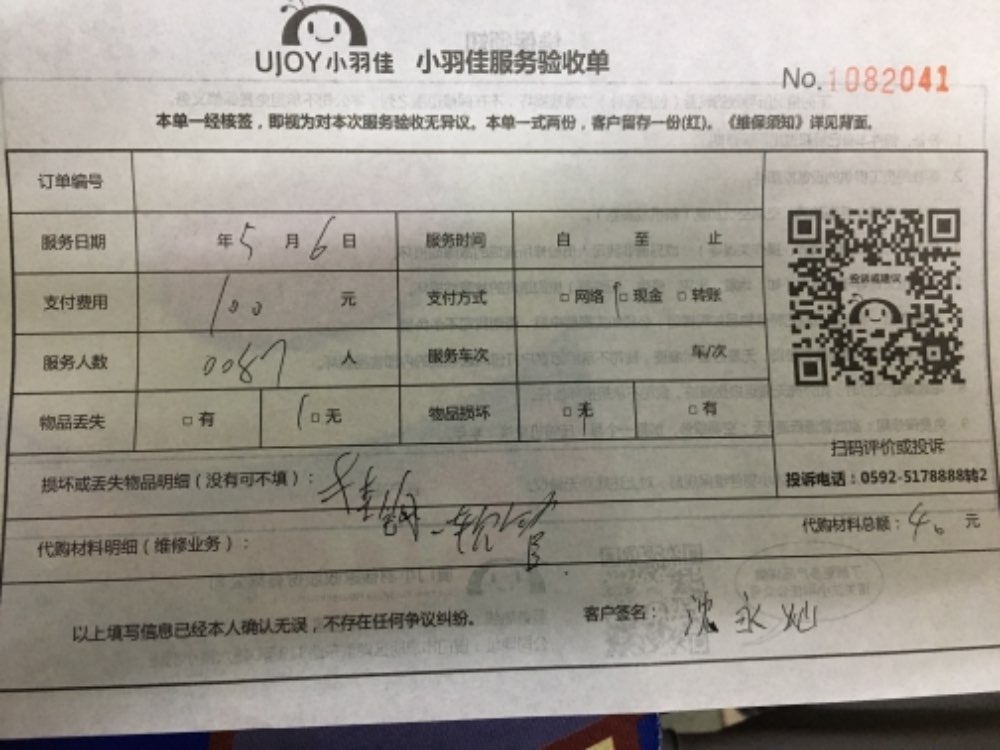 UJOY小羽佳 小羽佳服务验收单
No.1082041
本单一经核签，即视为对本次服务验收无异议。本单一式两份，客户留存一份(红)。《维保须知》详见背面。
订单编号
服务日期 年5月6日 服务时间 自 至 止
投诉或建议
支付费用 100 元 支付方式 □网络 □现金 □转账
服务人数 0087 人 服务车次 车/次
物品丢失 □有 □无 物品损坏 □无 □有
扫码评价或投诉
投诉电话：0592-5178888转2
损坏或丢失物品明细（没有可不填）：
代购材料明细（维修业务）： 代购材料总额：40 元
以上填写信息已经本人确认无误，不存在任何争议纠纷。 客户签名：沈永灿